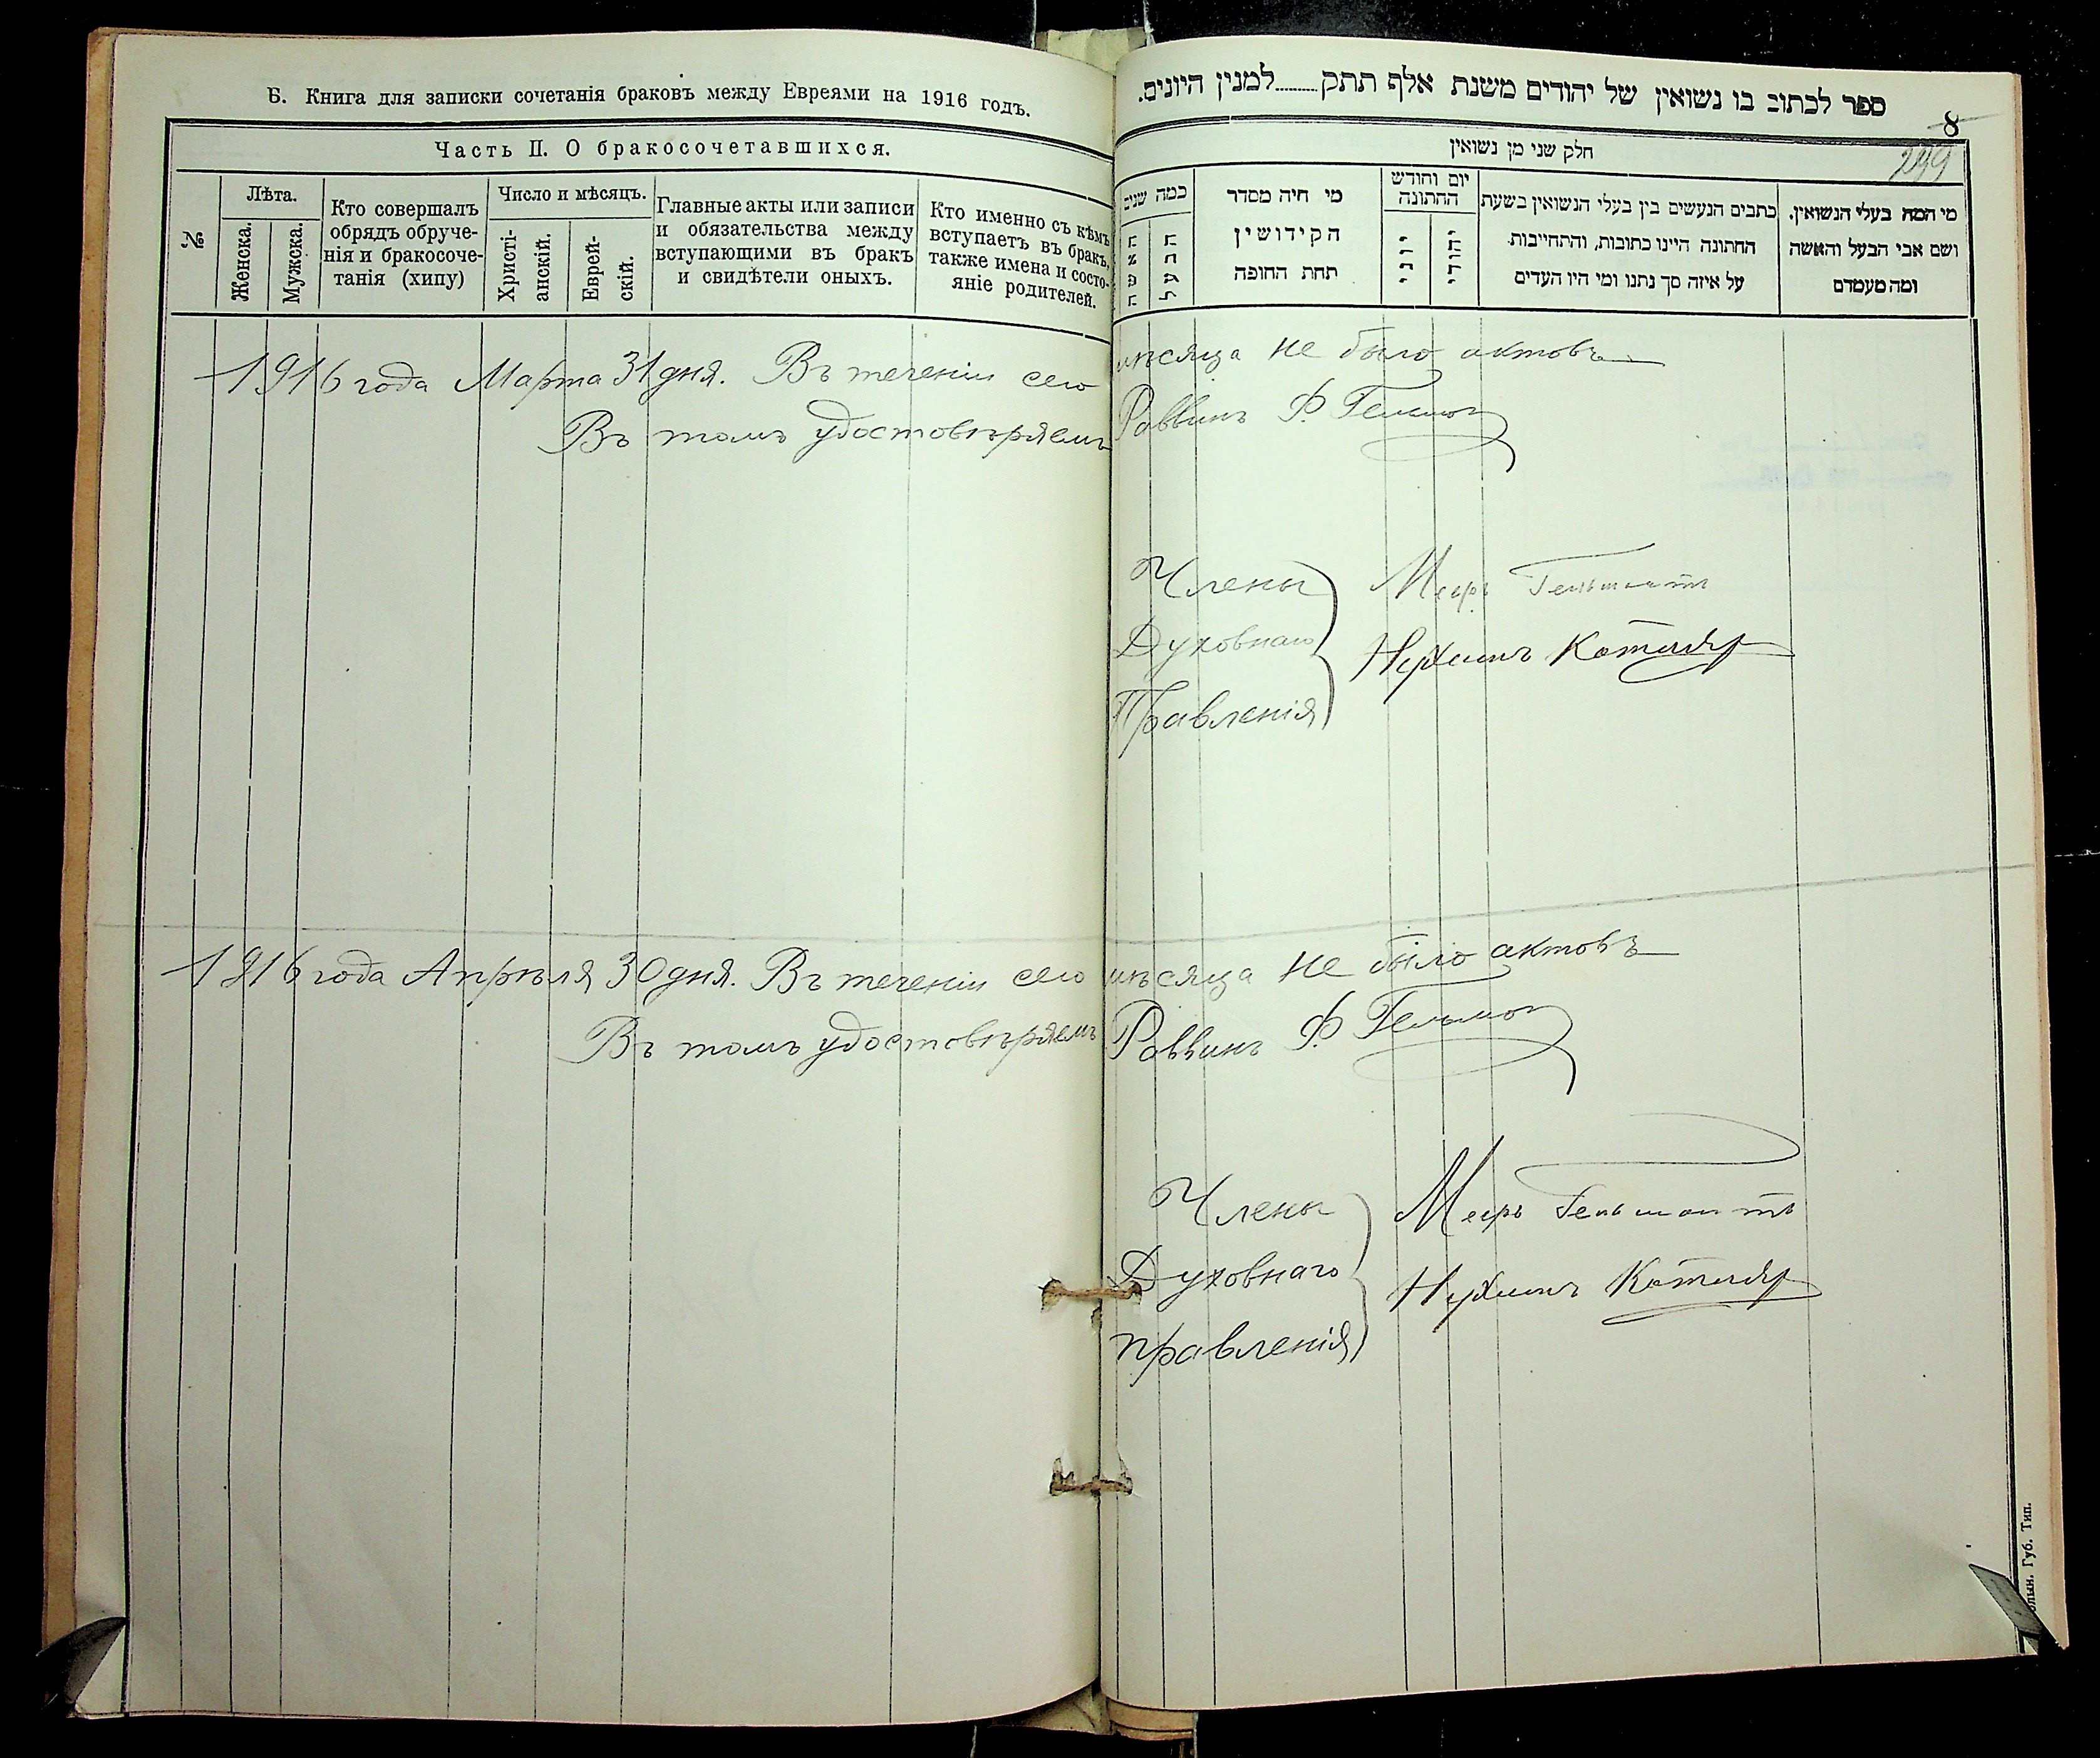 Б. Книга для записки сочетанія браковъ между Евреями на 1916 годъ.
Часть II. О бракосочетавшихся.
№
Лѣта.
Женска.
Мужска.
Кто совершалъ
обрядъ обруче-
нія и бракосоче-
танія (хипу)
Число и мѣсяцъ.
Христі-
анскій.
Еврей-
скій.
Главные акты или записи
и обязательства между
вступающими въ бракъ
и свидѣтели оныхъ.
Кто именно съ кѣмъ
вступаетъ въ бракъ,
также имена и состо-
яніе родителей.
ספר לכתוב בו נשואין של יהודים משנת אלף תתק..........למנין היונים.
8
299
חלק שני מן נשואין
כמה שנים
האשה
הבעל
מי חיה מסדר
הקידושין
תחת החופה
יום וחודש
החתונה
יוני
יהודי
כתבים הנעשים בין בעלי הנשואין בשעת
החתונה היינו כתובות, והתחייבות
על איזה סך נתנו ומי היו העדים
מי המה בעלי הנשואין,
ושם אבי הבעל והאשה
ומה מעמדם
1916 года Марта 31 дня. Въ теченіи сего мѣсяца не было актовъ
Въ томъ удостовѣряемъ Раввинъ Ф. Гельман
Члены
Духовнаго
Правленія
Мееръ Гельманъ
Нухимъ Котляр
1916 года Апрѣля 30 дня. Въ теченіи сего мѣсяца не было актовъ
Въ томъ удостовѣряемъ Раввинъ Ф. Гельман
Члены
Духовнаго
правленія
Мееръ
Нухимъ Котляр
Губ. Тип.